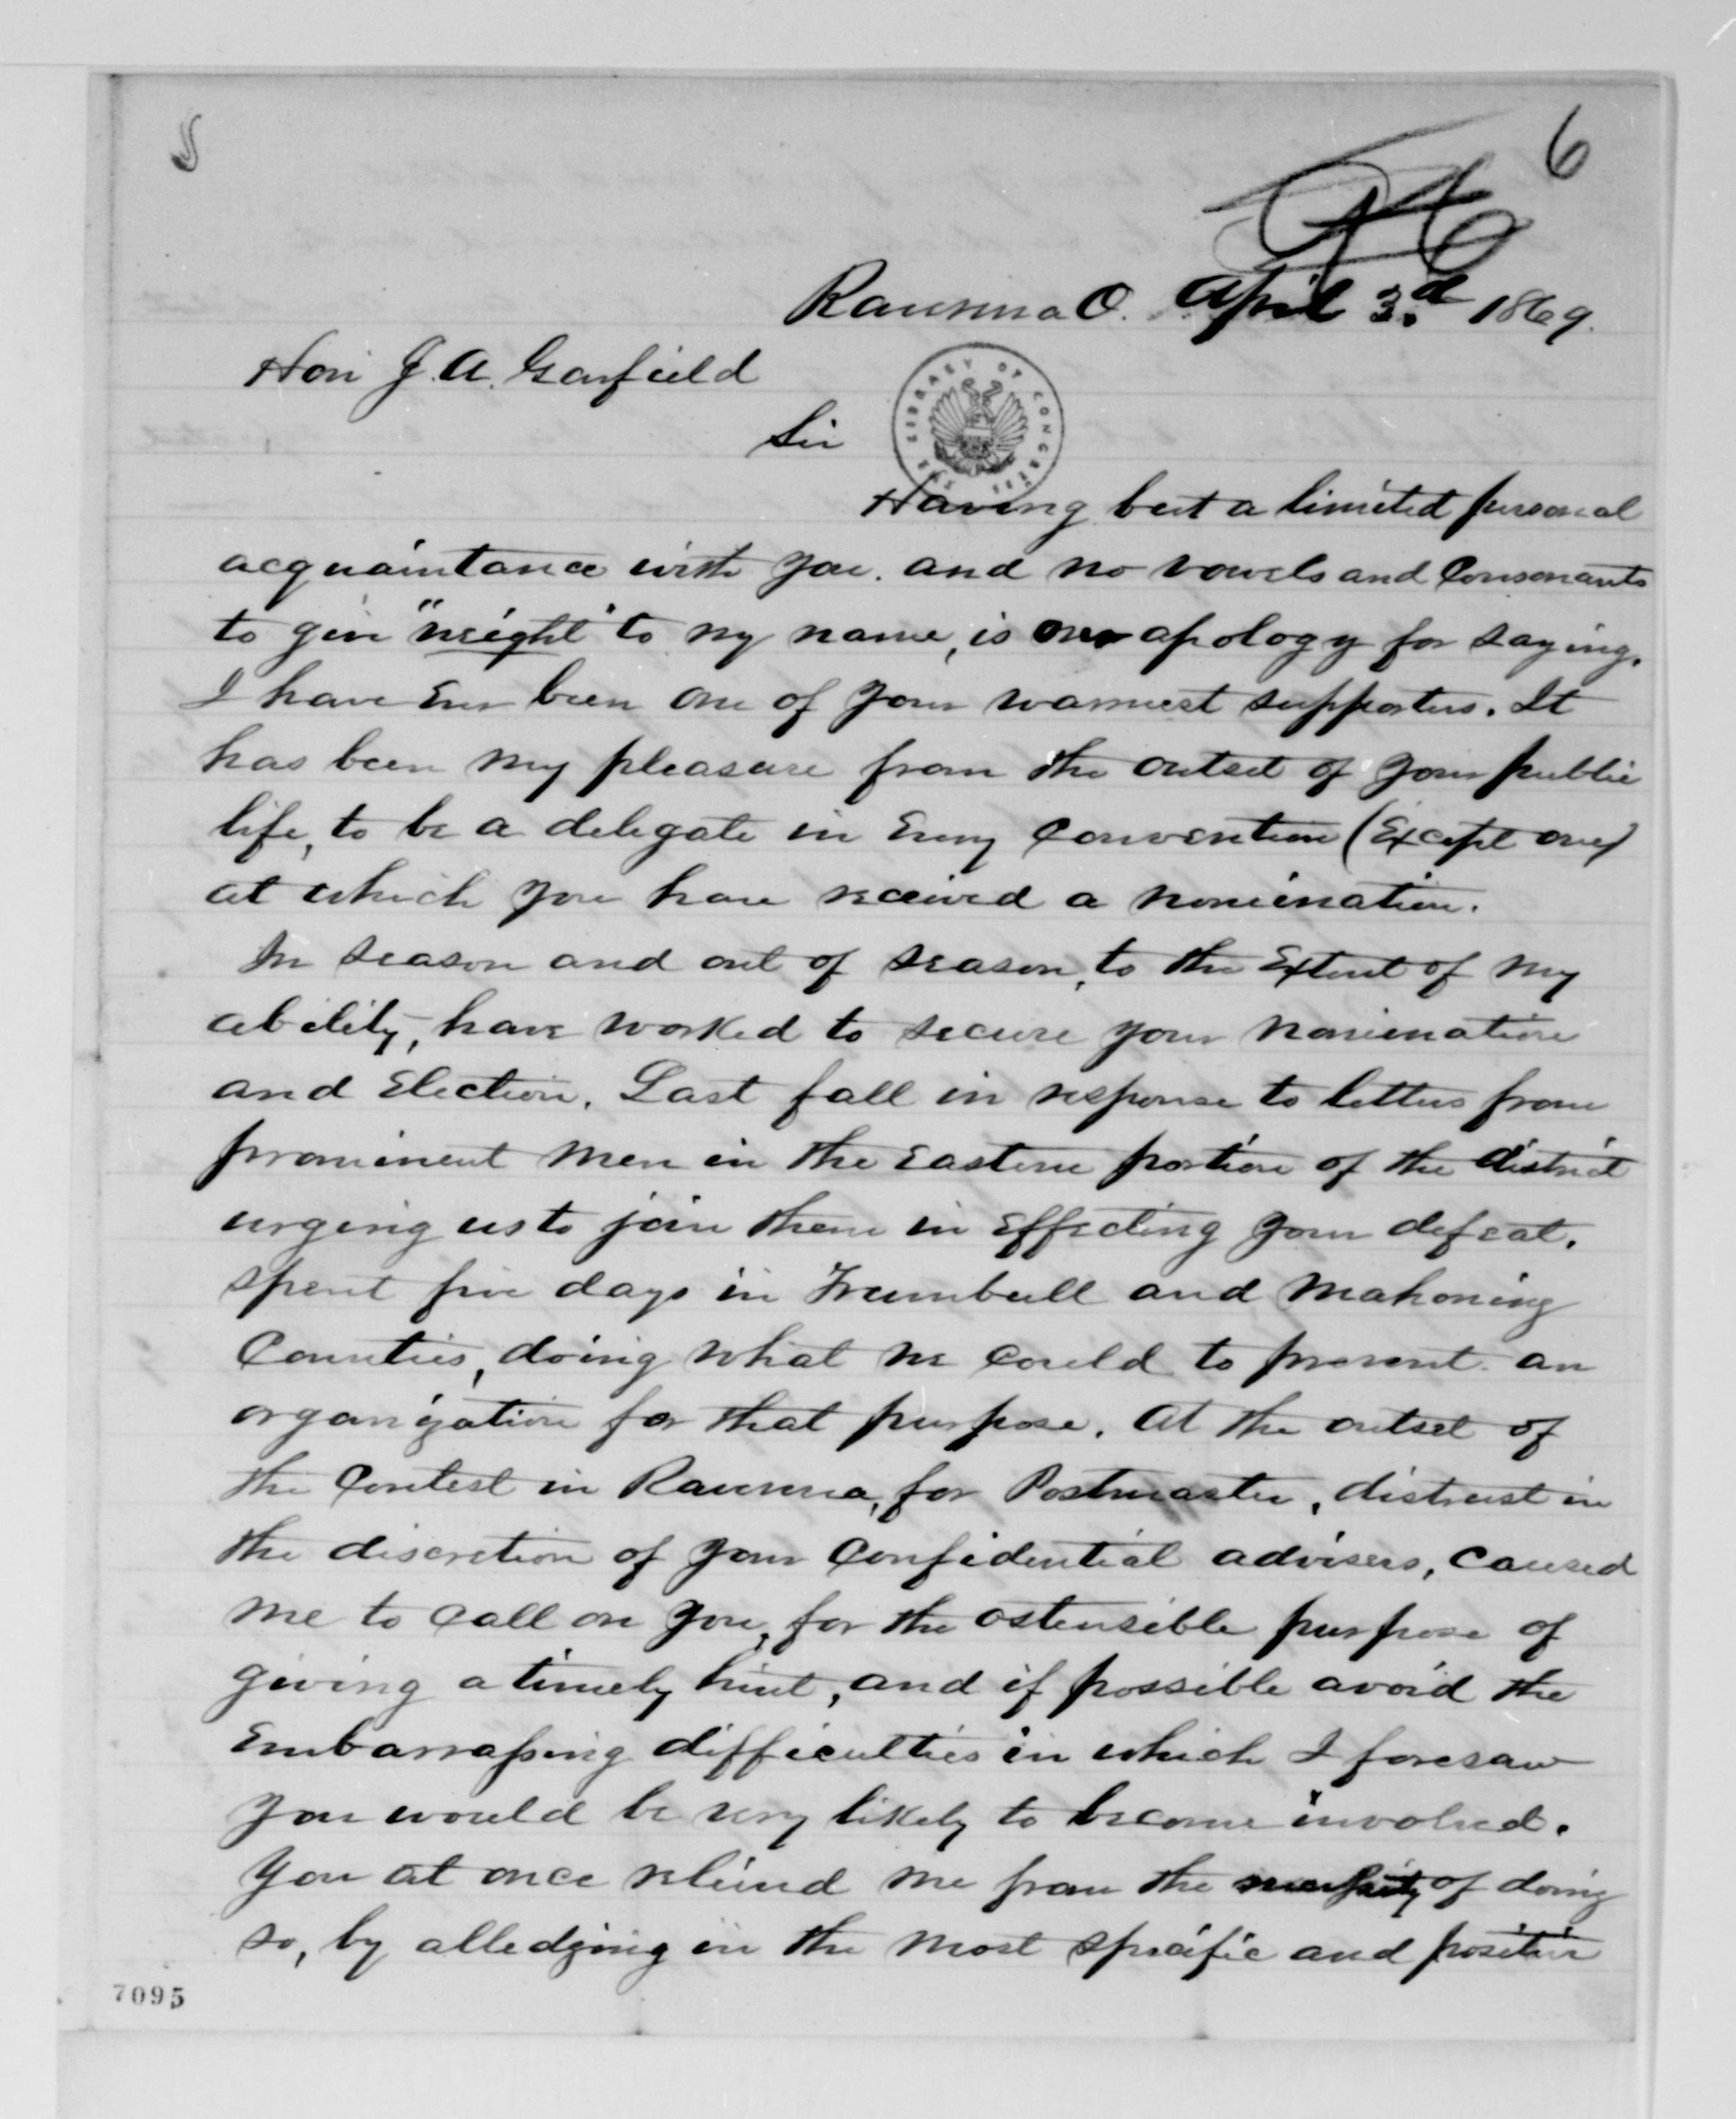 6
Ravenna O. April 3.d 1869.
Hon J. A. Garfield
Sir
THE LIBRARY OF CONGRESS
Having but a limited personal
acquaintance with you. and no vowels and Consonants
to give "weight" to my name, is my apology for saying,
I have Ever been one of your warmest supporters. It
has been my pleasure from the outset of your public
life, to be a delegate in Every Convention (Except one)
at which you have received a nomination.
In season and out of season, to the Extent of my
ability, have worked to secure your nomination
and Election. Last fall in response to letters from
prominent men in the Eastern portion of the district
urging us to join them in Effecting your defeat.
spent five days in Trumbull and Mahoning
Counties, doing what we could to prevent an
organization for that purpose. At the outset of
the Contest in Ravenna, for Postmaster, distrust in
the discretion of your Confidential advisers, Caused
me to Call on you, for the ostensible purpose of
giving a timely hint, and if possible avoid the
Embarrassing difficulties in which I foresaw
you would be very likely to become involved.
You at once relieved me from the necessity of doing
so, by alledging in the most specific and positive
7095